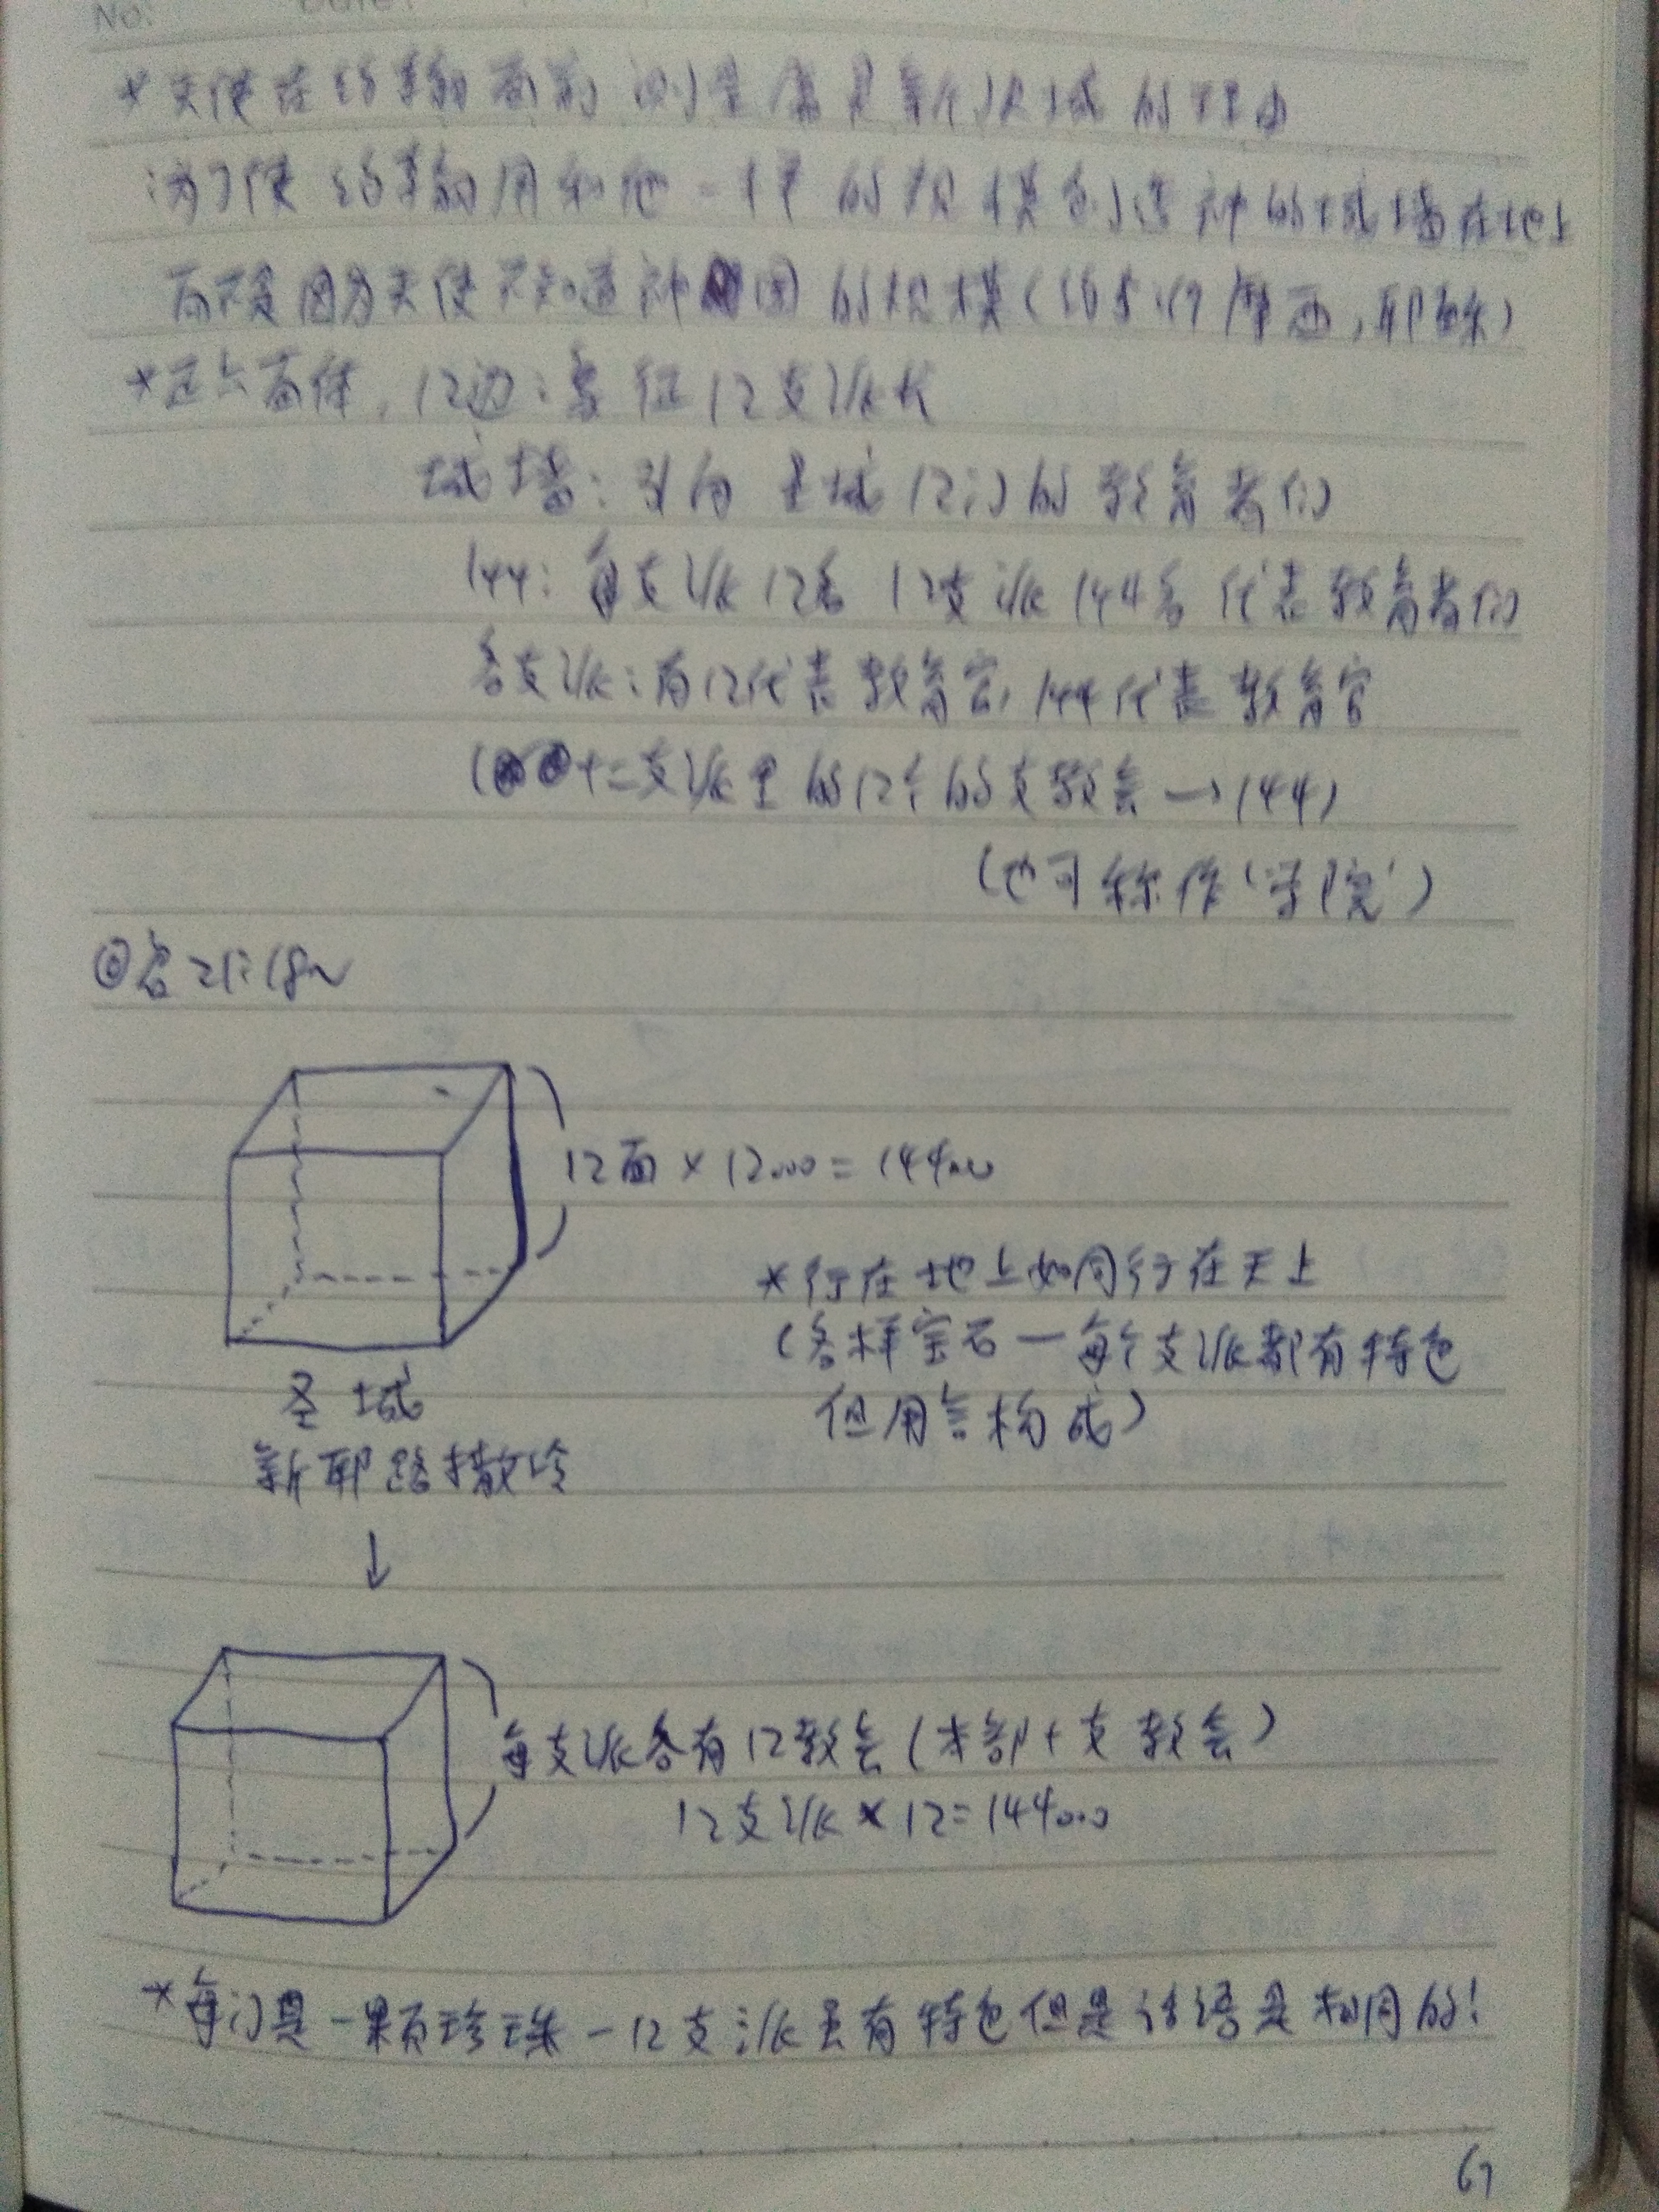 No: Date:
*天使在约翰面前测量属灵新耶城的理由
:为了使约翰用和他一样的规模创造神的城墙在地上
而不是因为天使不知道神国的规模(约5:19 摩西,耶稣)
*正六面体,12边:象征12支派长
城墙:引向圣城12门的教育者们
144:每支派12名 12支派144名代表教育者们
各支派:有12代表教育官,144代表教育官
(十二支派里的12个的支教会→144)
(也可称作'学院')
◎启21:18~
12面×12000=144000
*行在地上如同行在天上
(各样宝石一每个支派都有特色
但用言构成)
圣城
新耶路撒冷
↓
每支派各有12教会(本部+支教会)
12支派×12=144000
*每门是一颗珍珠-12支派虽有特色但是话语是相同的!
67